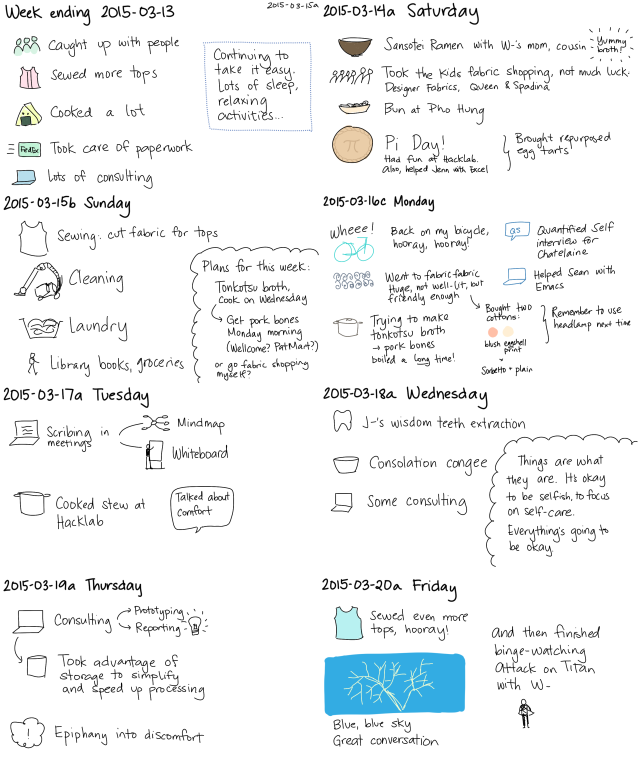 Week ending 2015-03-13
2015-03-15a
Caught up with people
Sewed more tops
Cooked a lot
FedEx
Took care of paperwork
Lots of consulting
Continuing to
take it easy.
Lots of sleep,
relaxing
activities...
2015-03-14a Saturday
Sansotei Ramen with W-'s mom, cousin
Yummy
broth!
Took the kids fabric shopping, not much luck.
Designer Fabrics, Queen & Spadina
Bun at Pho Hung
π
Pi Day!
Had fun at Hacklab.
Also, helped Jenn with Excel
Brought repurposed
egg tarts
2015-03-15b Sunday
Sewing: cut fabric for tops
Cleaning
Laundry
Library books, groceries
Plans for this week:
Tonkotsu broth,
Cook on Wednesday
Get pork bones
Monday morning
(Wellcome? PatMart?)
or go fabric shopping
myself?
2015-03-16c Monday
Wheee!
Back on my bicycle,
hooray, hooray!
Went to fabricfabric
Huge, not well-lit, but
friendly enough
Trying to make
tonkotsu broth
→ pork bones
boiled a long time!
as
Quantified Self
interview for
Chatelaine
Helped Sean with
Emacs
Bought two
cottons:
blush eggshell
print
Sorbetto + plain
Remember to use
headlamp next time
2015-03-17a Tuesday
Scribing in
meetings
Mindmap
Whiteboard
Cooked stew at
Hacklab
Talked about
comfort
2015-03-18a Wednesday
J-'s wisdom teeth extraction
Consolation congee
Some consulting
Things are what
they are. It's okay
to be selfish, to focus
on self-care.
Everything's going to
be okay.
2015-03-19a Thursday
Consulting
Prototyping
Reporting
Took advantage of
storage to simplify
and speed up processing
!
Epiphany into discomfort
2015-03-20a Friday
Sewed even more
tops, hooray!
Blue, blue sky
Great conversation
And then finished
binge-watching
Attack on Titan
with W-